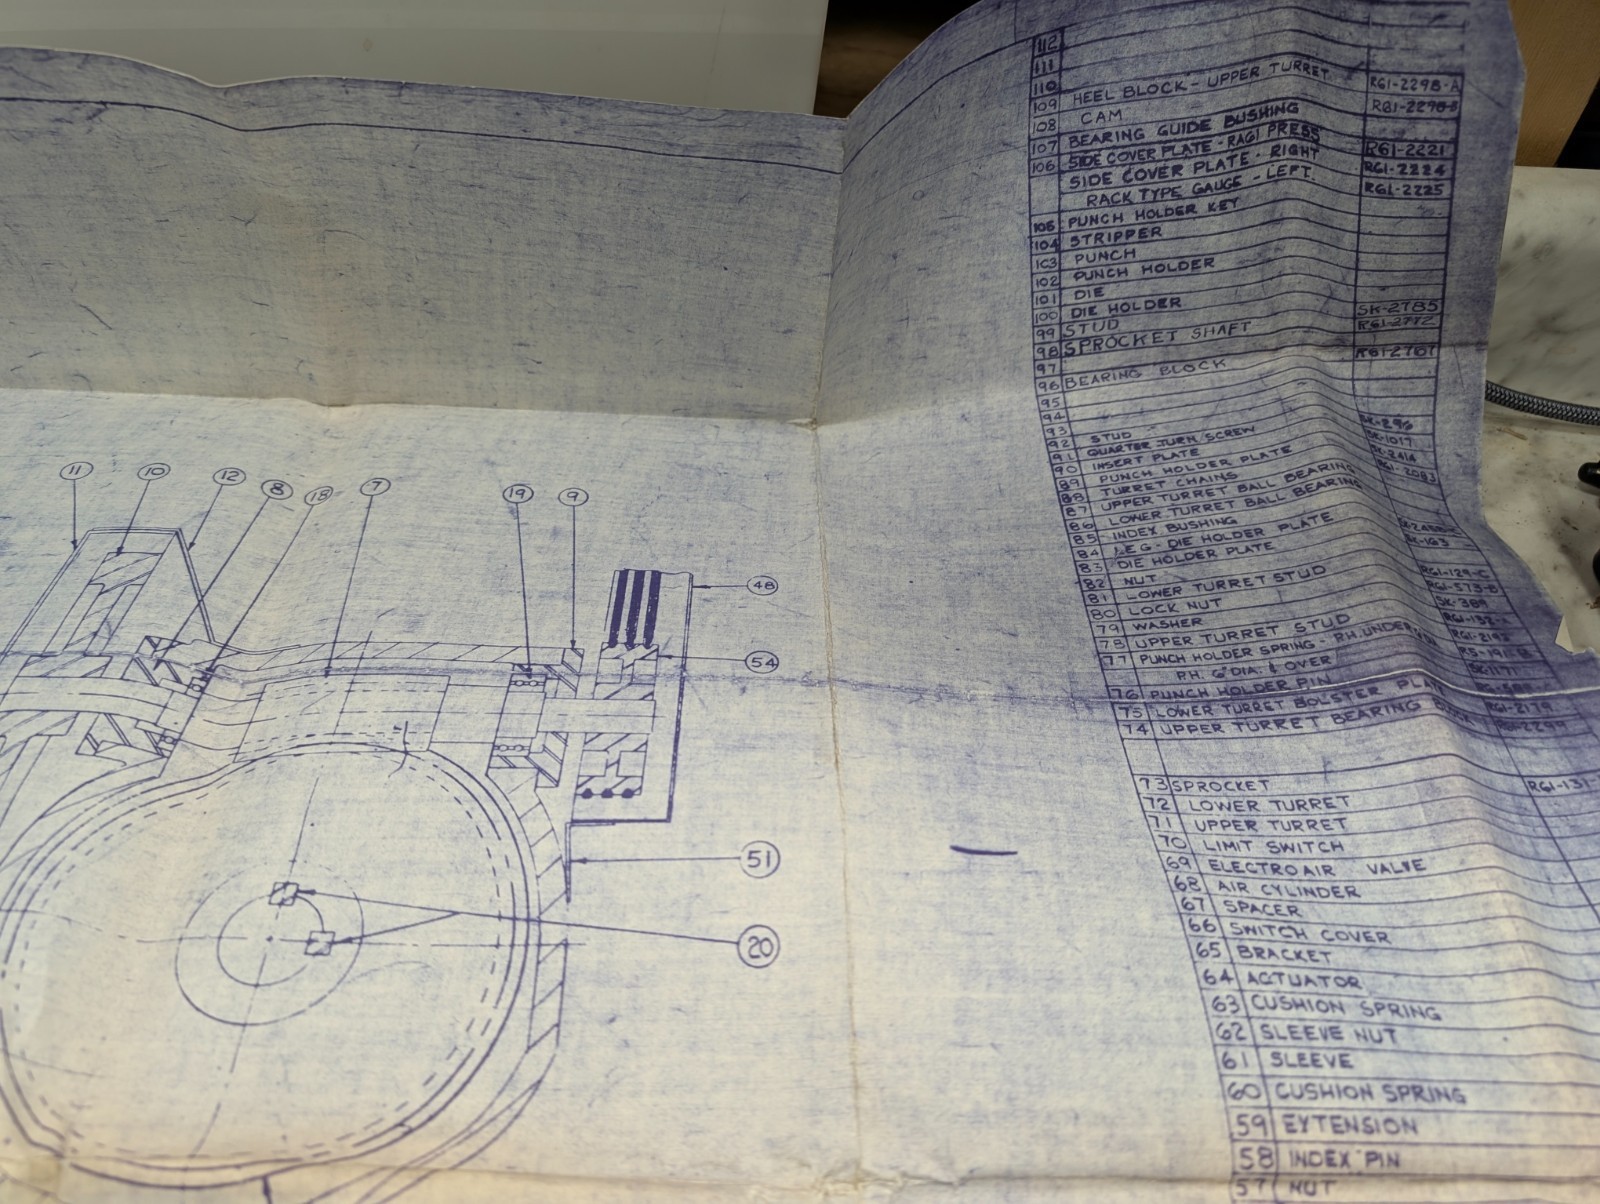 112
111
110
109 HEEL BLOCK - UPPER TURRET RG1-2298-A
108 CAM
107 BEARING GUIDE BUSHING
106 SIDE COVER PLATE - RAG1 PRESS RG1-2221
SIDE COVER PLATE - RIGHT RG1-2224
RACK TYPE GAUGE - LEFT. RG1-2225
105 PUNCH HOLDER KEY
104 STRIPPER
103 PUNCH
102 PUNCH HOLDER
101 DIE
100 DIE HOLDER
99 STUD SK-2785
98 SPROCKET SHAFT RG1-2772
97
96 BEARING BLOCK
95
94
93
92 STUD
91 QUARTER TURN SCREW
90 INSERT PLATE
89 PUNCH HOLDER PLATE
88 TURRET CHAINS
87 UPPER TURRET BALL BEARING
86 LOWER TURRET BALL BEARING
85 INDEX BUSHING
84 LEG - DIE HOLDER PLATE
83 DIE HOLDER PLATE
82 NUT
81 LOWER TURRET STUD
80 LOCK NUT
79 WASHER
78 UPPER TURRET STUD
77 PUNCH HOLDER SPRING - P.H. UNDER
P.H. 6" DIA. & OVER
76 PUNCH HOLDER PIN
75 LOWER TURRET BOLSTER PLATE RG1-2179
74 UPPER TURRET BEARING BLOCK
73 SPROCKET RG1-131
72 LOWER TURRET
71 UPPER TURRET
70 LIMIT SWITCH
69 ELECTROAIR VALVE
68 AIR CYLINDER
67 SPACER
66 SWITCH COVER
65 BRACKET
64 ACTUATOR
63 CUSHION SPRING
62 SLEEVE NUT
61 SLEEVE
60 CUSHION SPRING
59 EXTENSION
58 INDEX PIN
57 NUT
11
10
12
8
18
7
19
9
48
54
51
20